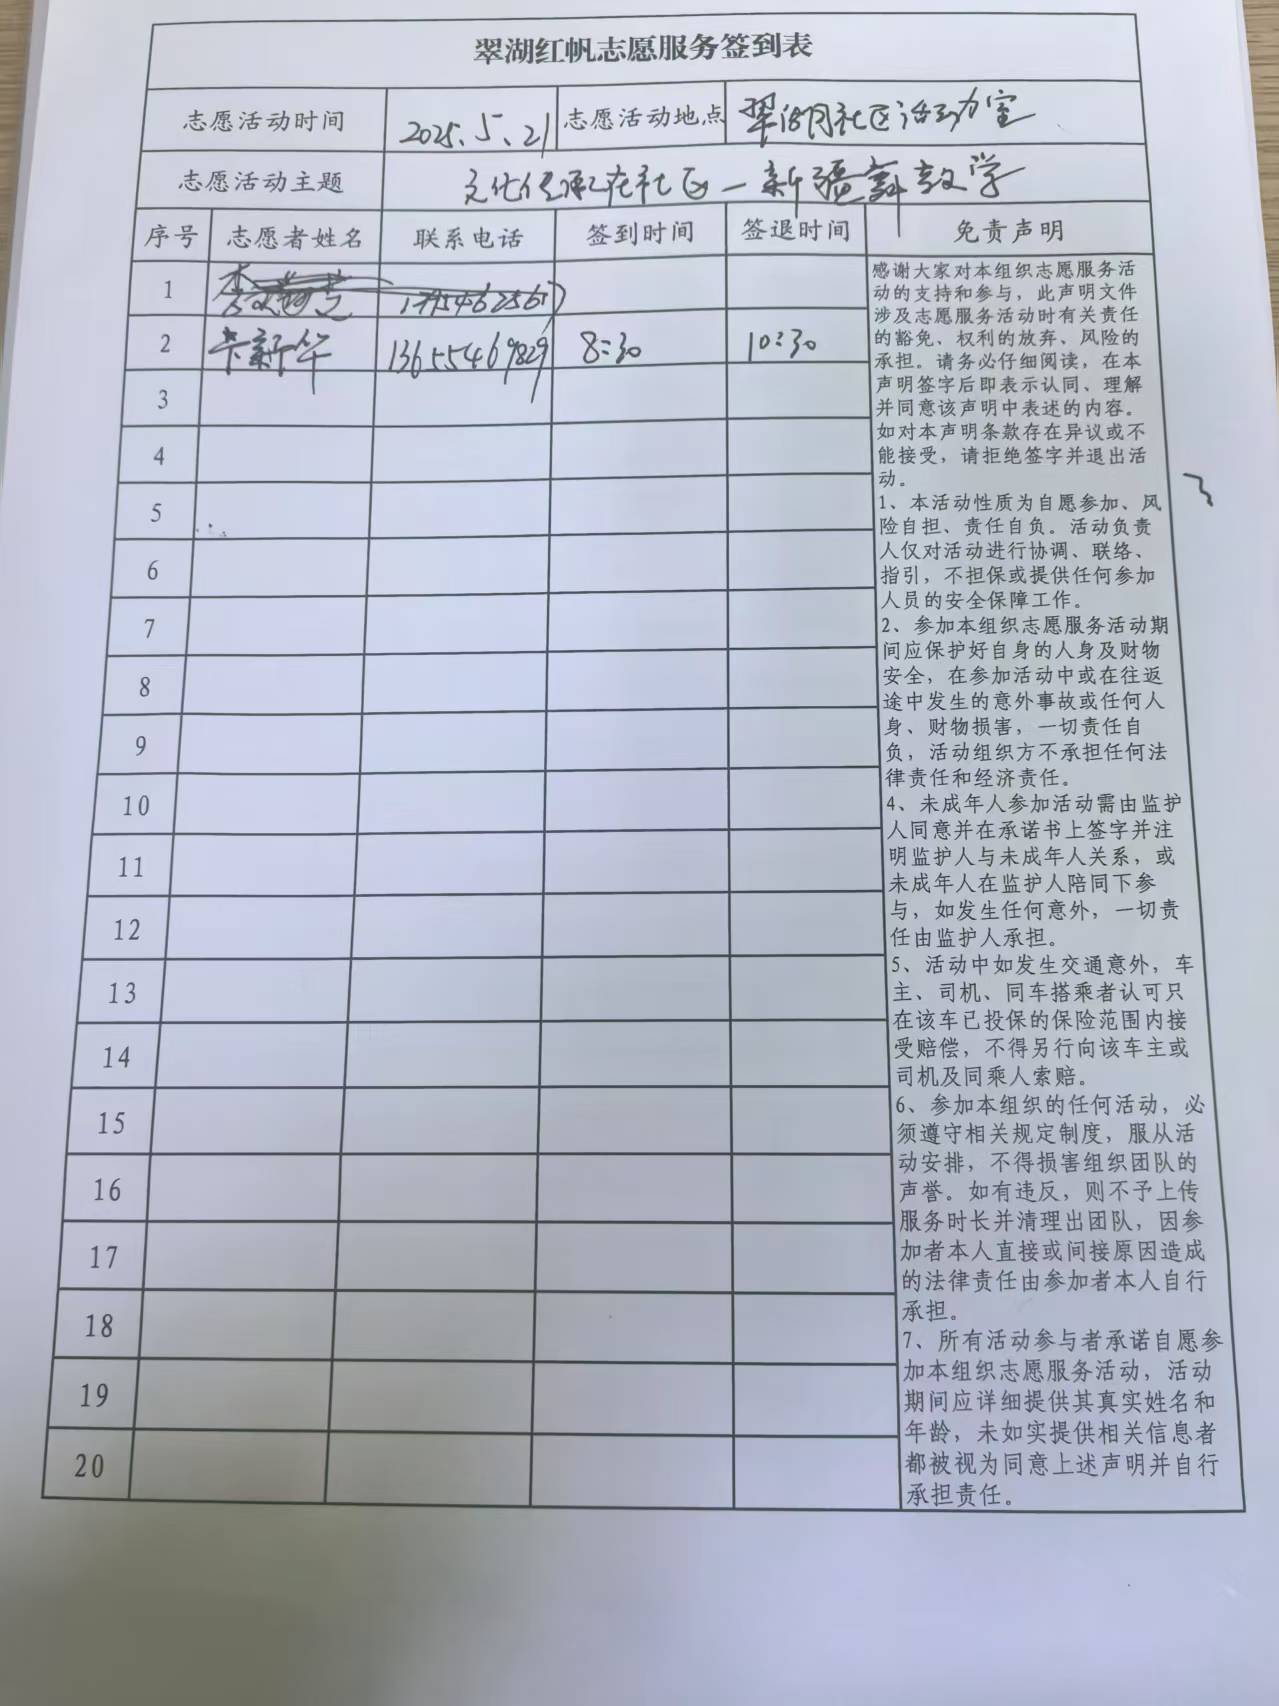 翠湖红帆志愿服务签到表
志愿活动时间 2025.5.21 志愿活动地点 翠湖社区活动室
志愿活动主题 文化传承在社区—新疆舞教学
序号 志愿者姓名 联系电话 签到时间 签退时间 免责声明
1
2 卡新华 13655469829 8:30 10:30
3
4
5
6
7
8
9
10
11
12
13
14
15
16
17
18
19
20
感谢大家对本组织志愿服务活
动的支持和参与，此声明文件
涉及志愿服务活动时有关责任
的豁免、权利的放弃、风险的
承担。请务必仔细阅读，在本
声明签字后即表示认同、理解
并同意该声明中表述的内容。
如对本声明条款存在异议或不
能接受，请拒绝签字并退出活
动。
1、本活动性质为自愿参加、风
险自担、责任自负。活动负责
人仅对活动进行协调、联络、
指引，不担保或提供任何参加
人员的安全保障工作。
2、参加本组织志愿服务活动期
间应保护好自身的人身及财物
安全，在参加活动中或在往返
途中发生的意外事故或任何人
身、财物损害，一切责任自
负，活动组织方不承担任何法
律责任和经济责任。
4、未成年人参加活动需由监护
人同意并在承诺书上签字并注
明监护人与未成年人关系，或
未成年人在监护人陪同下参
与，如发生任何意外，一切责
任由监护人承担。
5、活动中如发生交通意外，车
主、司机、同车搭乘者认可只
在该车已投保的保险范围内接
受赔偿，不得另行向该车主或
司机及同乘人索赔。
6、参加本组织的任何活动，必
须遵守相关规定制度，服从活
动安排，不得损害组织团队的
声誉。如有违反，则不予上传
服务时长并清理出团队，因参
加者本人直接或间接原因造成
的法律责任由参加者本人自行
承担。
7、所有活动参与者承诺自愿参
加本组织志愿服务活动，活动
期间应详细提供其真实姓名和
年龄，未如实提供相关信息者
都被视为同意上述声明并自行
承担责任。